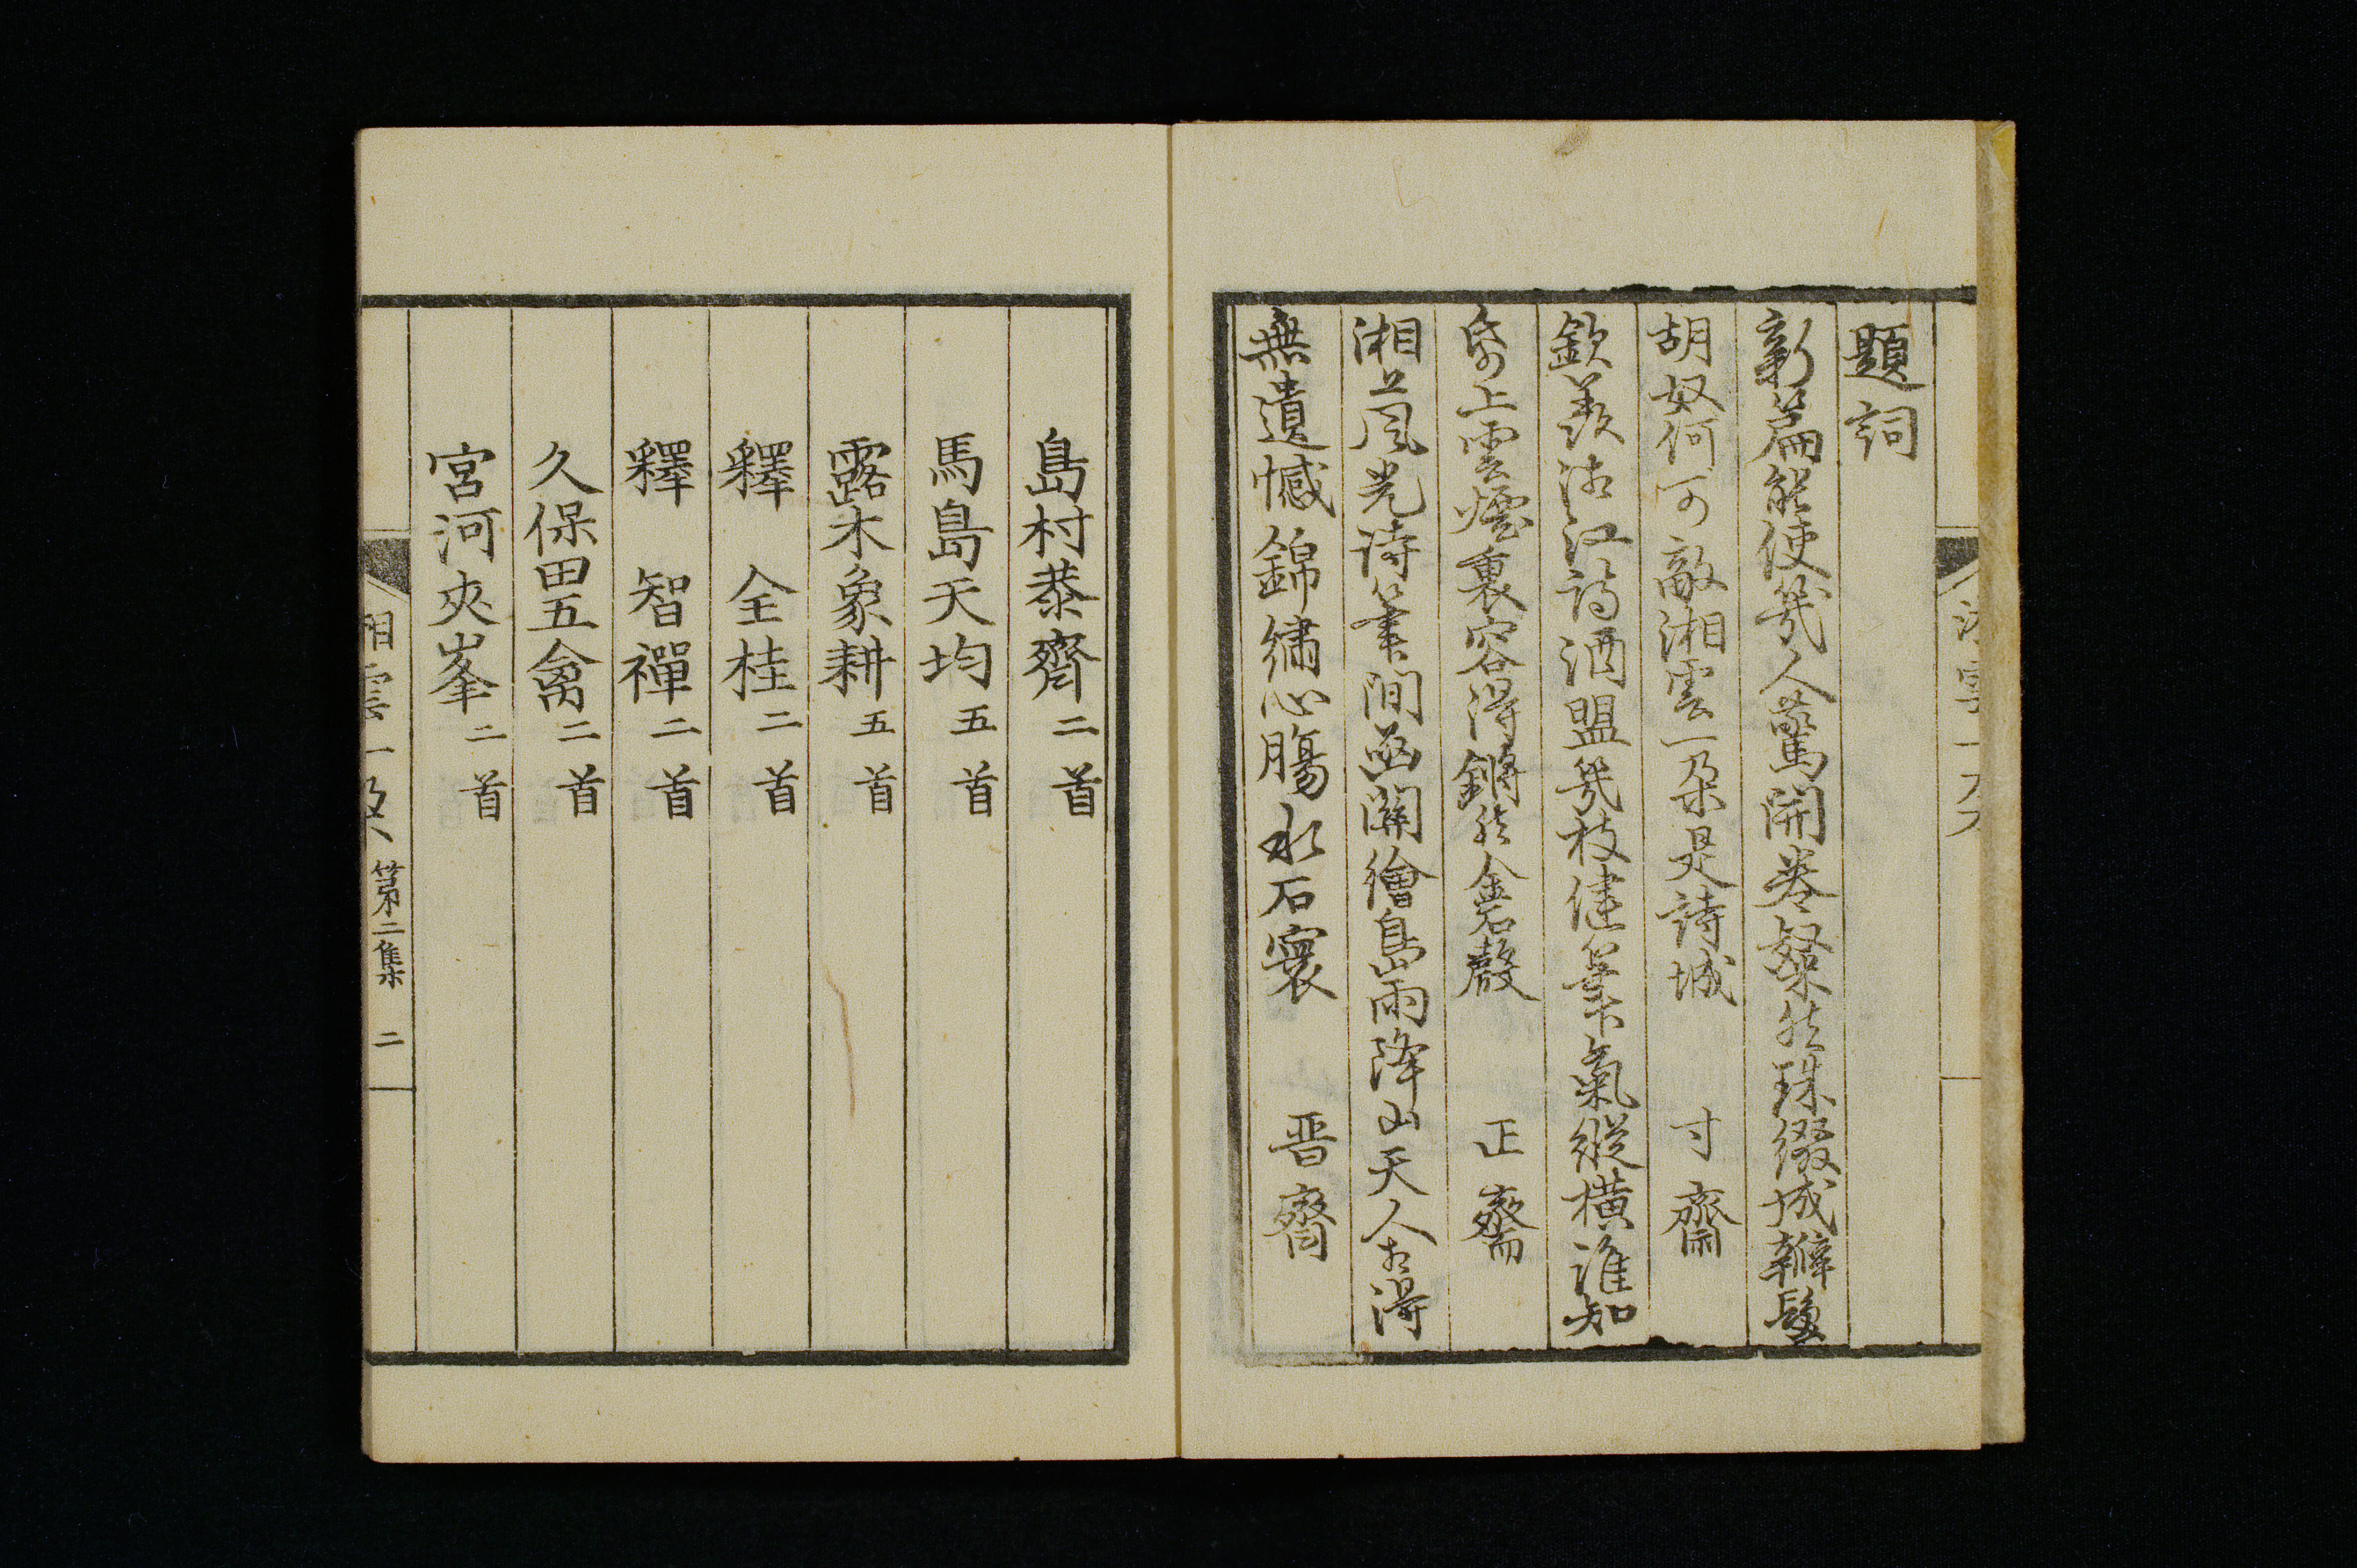 題詞
新篇能使幾人驚開卷粲然珠綴成辮髮
胡奴何可敵湘雲一朶是詩城 寸齋
欽羨沽江詩酒盟幾枝健筆氣縱橫誰知
帋上雲煙裏容得鏘然金石聲 正齋
湘上風光詩筆間函關繪島雨降山天人古得
無遺憾錦繡心腸水石寰 晋齋
島村恭齋二首
馬島天均五首
露木象耕五首
釋 全桂二首
釋 智禪二首
久保田五禽二首
宮河夾峯二首
湘雲一朶 第二集 二